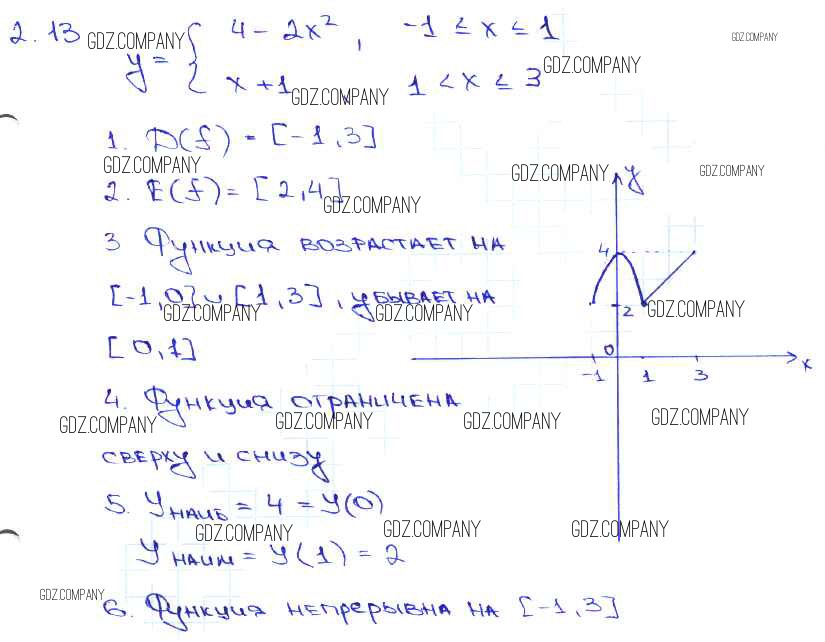 2.13 GDZ.COMPANY y = { 4 - 2x², -1 ≤ x ≤ 1 GDZ.COMPANY
x + 1, 1 < x ≤ 3 GDZ.COMPANY
GDZ.COMPANY
1. D(f) = [-1, 3]
GDZ.COMPANY GDZ.COMPANY y GDZ.COMPANY
2. E(f) = [2, 4] GDZ.COMPANY
3 Функция возрастает на 4
[-1, 0] и [1, 3], убывает на
GDZ.COMPANY GDZ.COMPANY 2 GDZ.COMPANY
[0, 1] 0 x
-1 1 3
4. Функция ограничена
GDZ.COMPANY GDZ.COMPANY GDZ.COMPANY GDZ.COMPANY
сверху и снизу
5. y наиб = 4 = y(0)
GDZ.COMPANY GDZ.COMPANY GDZ.COMPANY
y наим = y(1) = 2
GDZ.COMPANY
6. Функция непрерывна на [-1, 3]